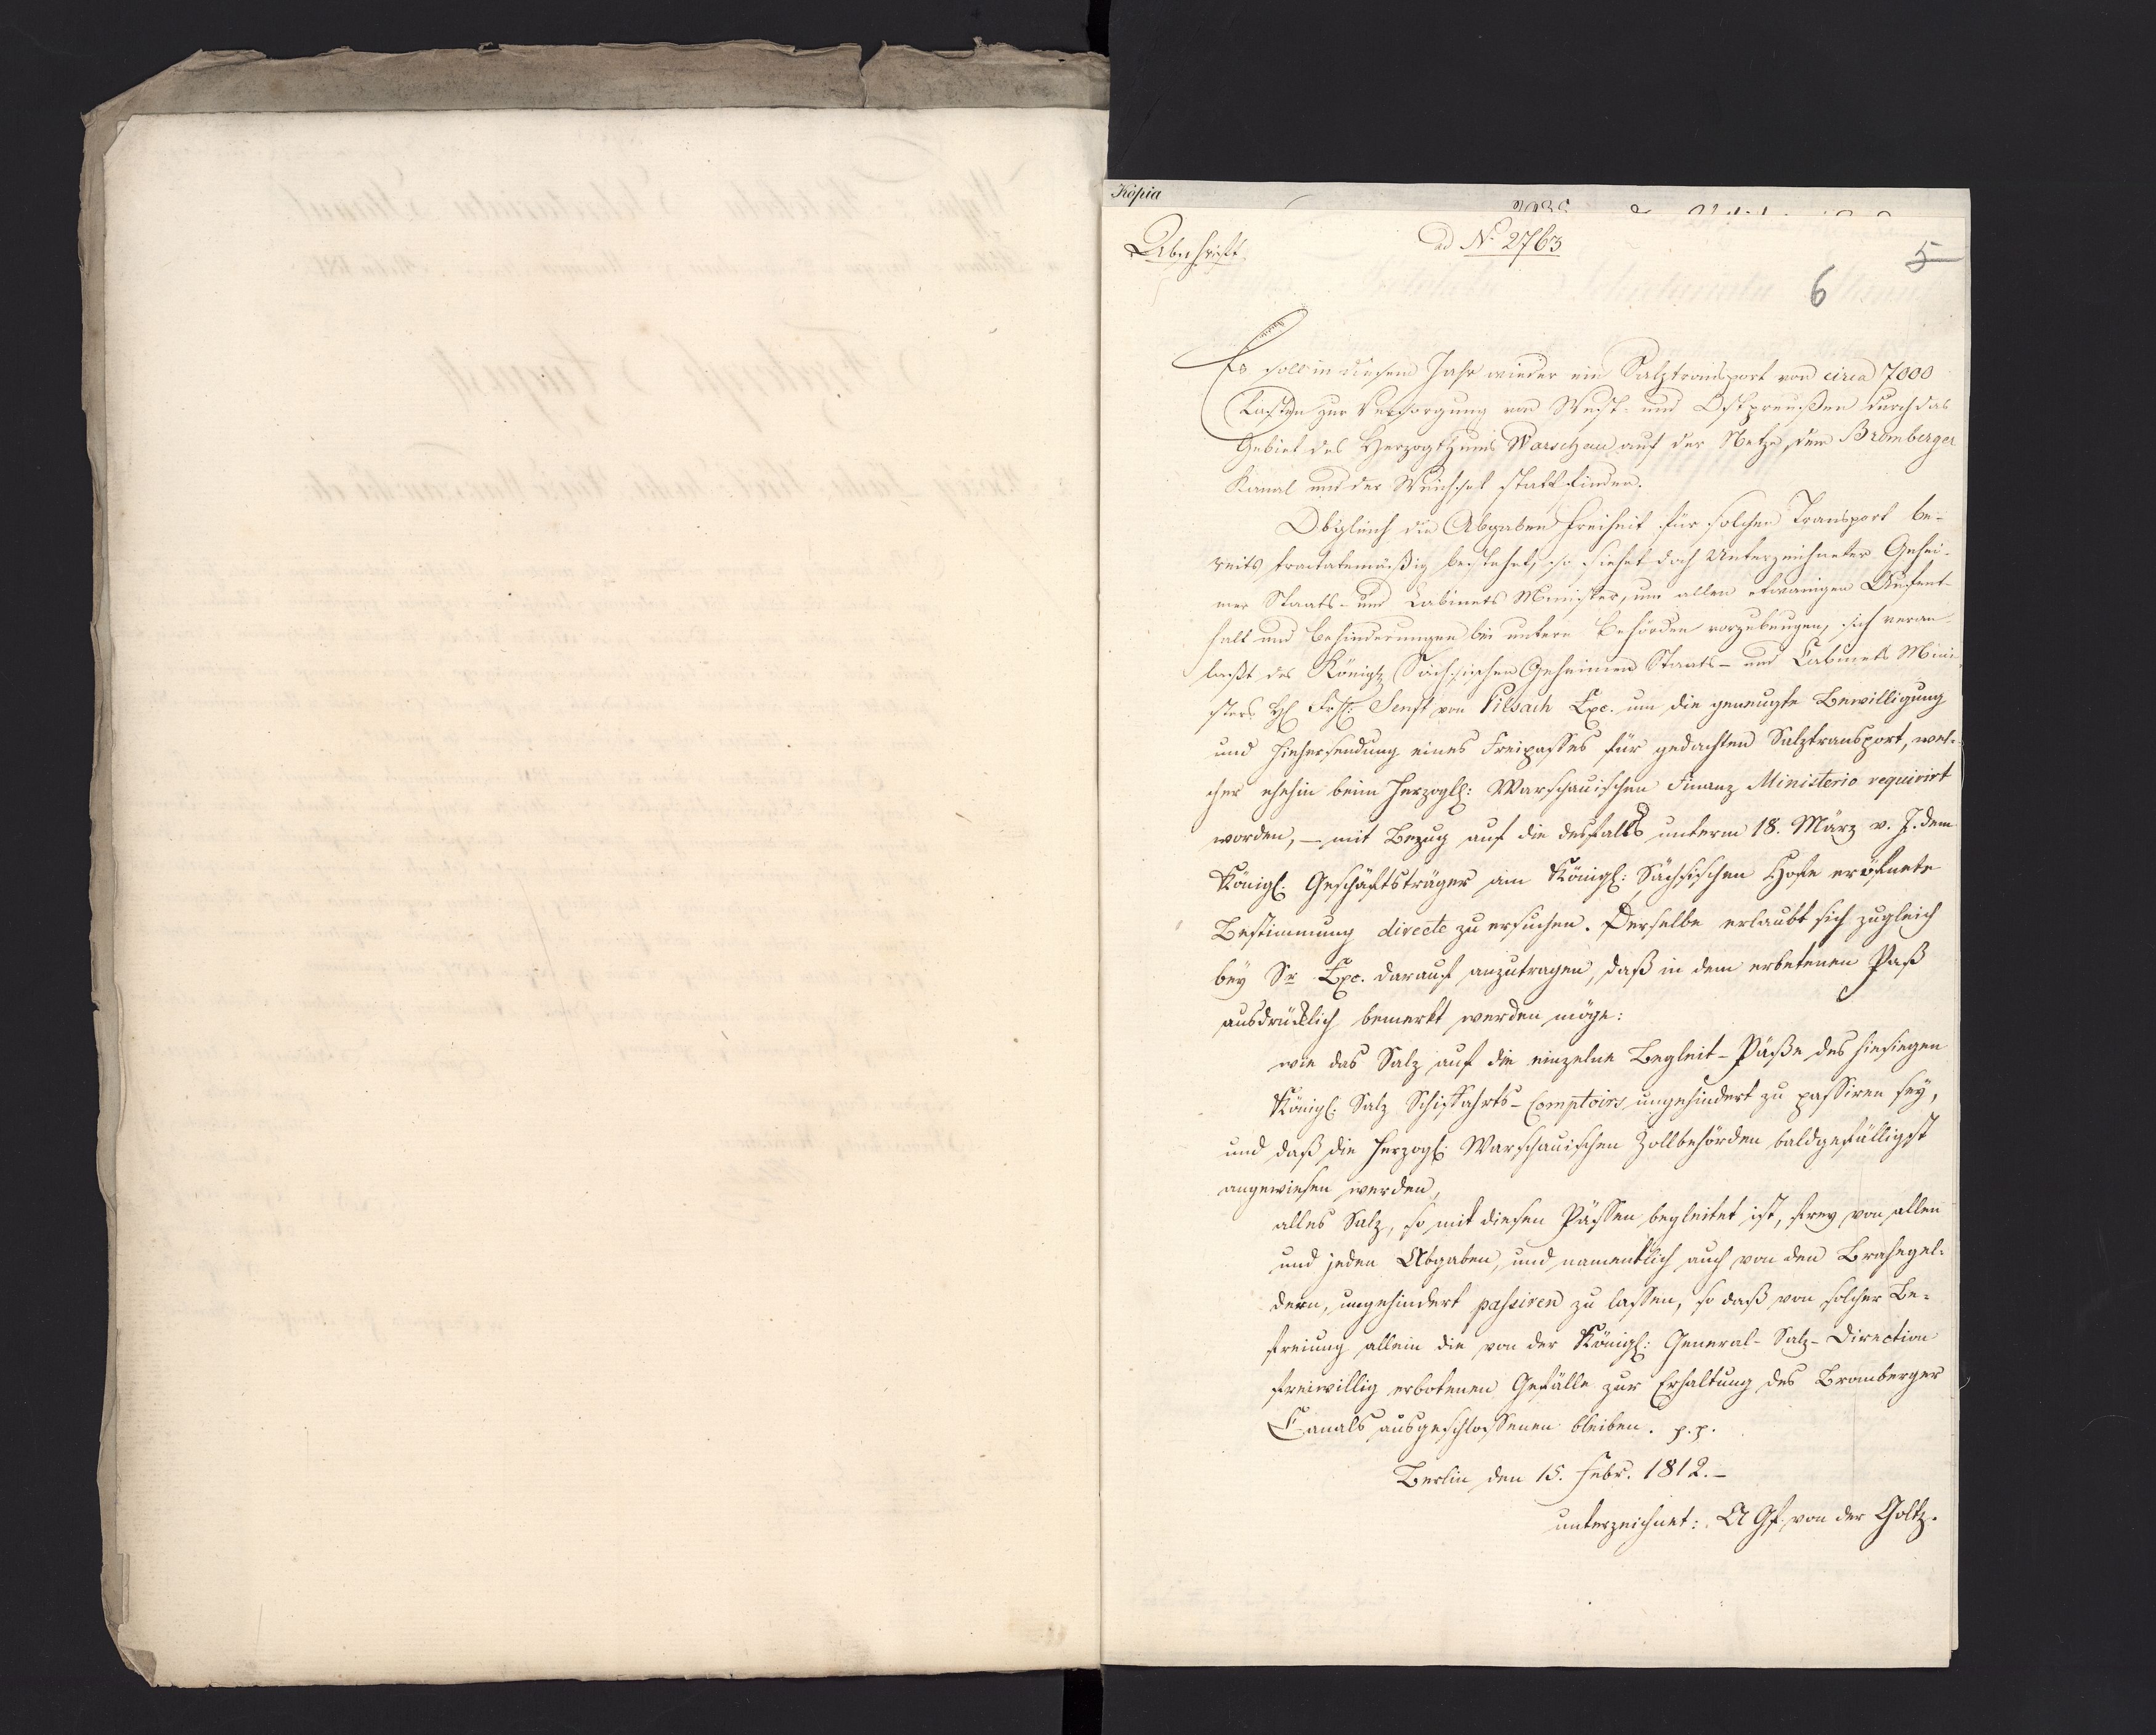 Kopia
Abschrift.
ad No. 2763
5
6
Es soll in diesem Jahr wieder ein Salztransport von circa 7000
Lasten zur Versorgung von West- und Ostpreußen durch das
Gebiet des Herzogthums Warschau auf der Netze, dem Bromberger
Kanal und der Weichsel statt finden.
Obgleich die Abgaben Freiheit für solchen Transport be-
reits tractatenmäßig bestehet, so siehet doch Unterzeichneter Gehei-
mer Staats- und Cabinets Minister, um allen etwanigen Aufent-
halt und Behinderungen bei untern Behörden vorzubeugen, sich veran-
laßt des Königl. Sächsischen Geheimen Staats- und Cabinets Mini-
sters H. Frh: Senft von Pilsach Exc. um die geneugte Bewilligung
und Hiehersendung eines Freipasses für gedachten Salztransport, wel-
cher ehehin beim Herzogl: Warschauischen Finanz Ministerio requirirt
worden, – mit Bezug auf die desfalls unterm 18. März v. J. dem
Königl. Geschäftsträger am Königl: Sächsischen Hofe eröfnete
Bestimmung directe zu ersuchen. Derselbe erlaubt sich zugleich
bey Sr. Exc. darauf anzutragen, daß in dem erbetenen Paß
ausdrücklich bemerkt werden möge:
wie das Salz auf die einzelne Begleit-Päße des hiesigen
Königl. Salz Schiffahrts-Comptoirs ungehindert zu passiren sey,
und daß die Herzogl: Warschauischen Zollbehörden baldgefälligst
angewiesen werden,
alles Salz, so mit diesen Pässen begleitet ist, frey von allen
und jeden Abgaben, und namentlich auch von den Brahegel-
dern, ungehindert passiren zu lassen, so daß von solcher Be-
freiung allein die von der Königl: General-Salz-Direction
freiwillig erbotenen Gefälle zur Erhaltung des Bromberger
Canals ausgeschlossenen bleiben. p.p.
Berlin den 15. Febr. 1812.–
unterzeichnet: A Gf. von der Goltz.